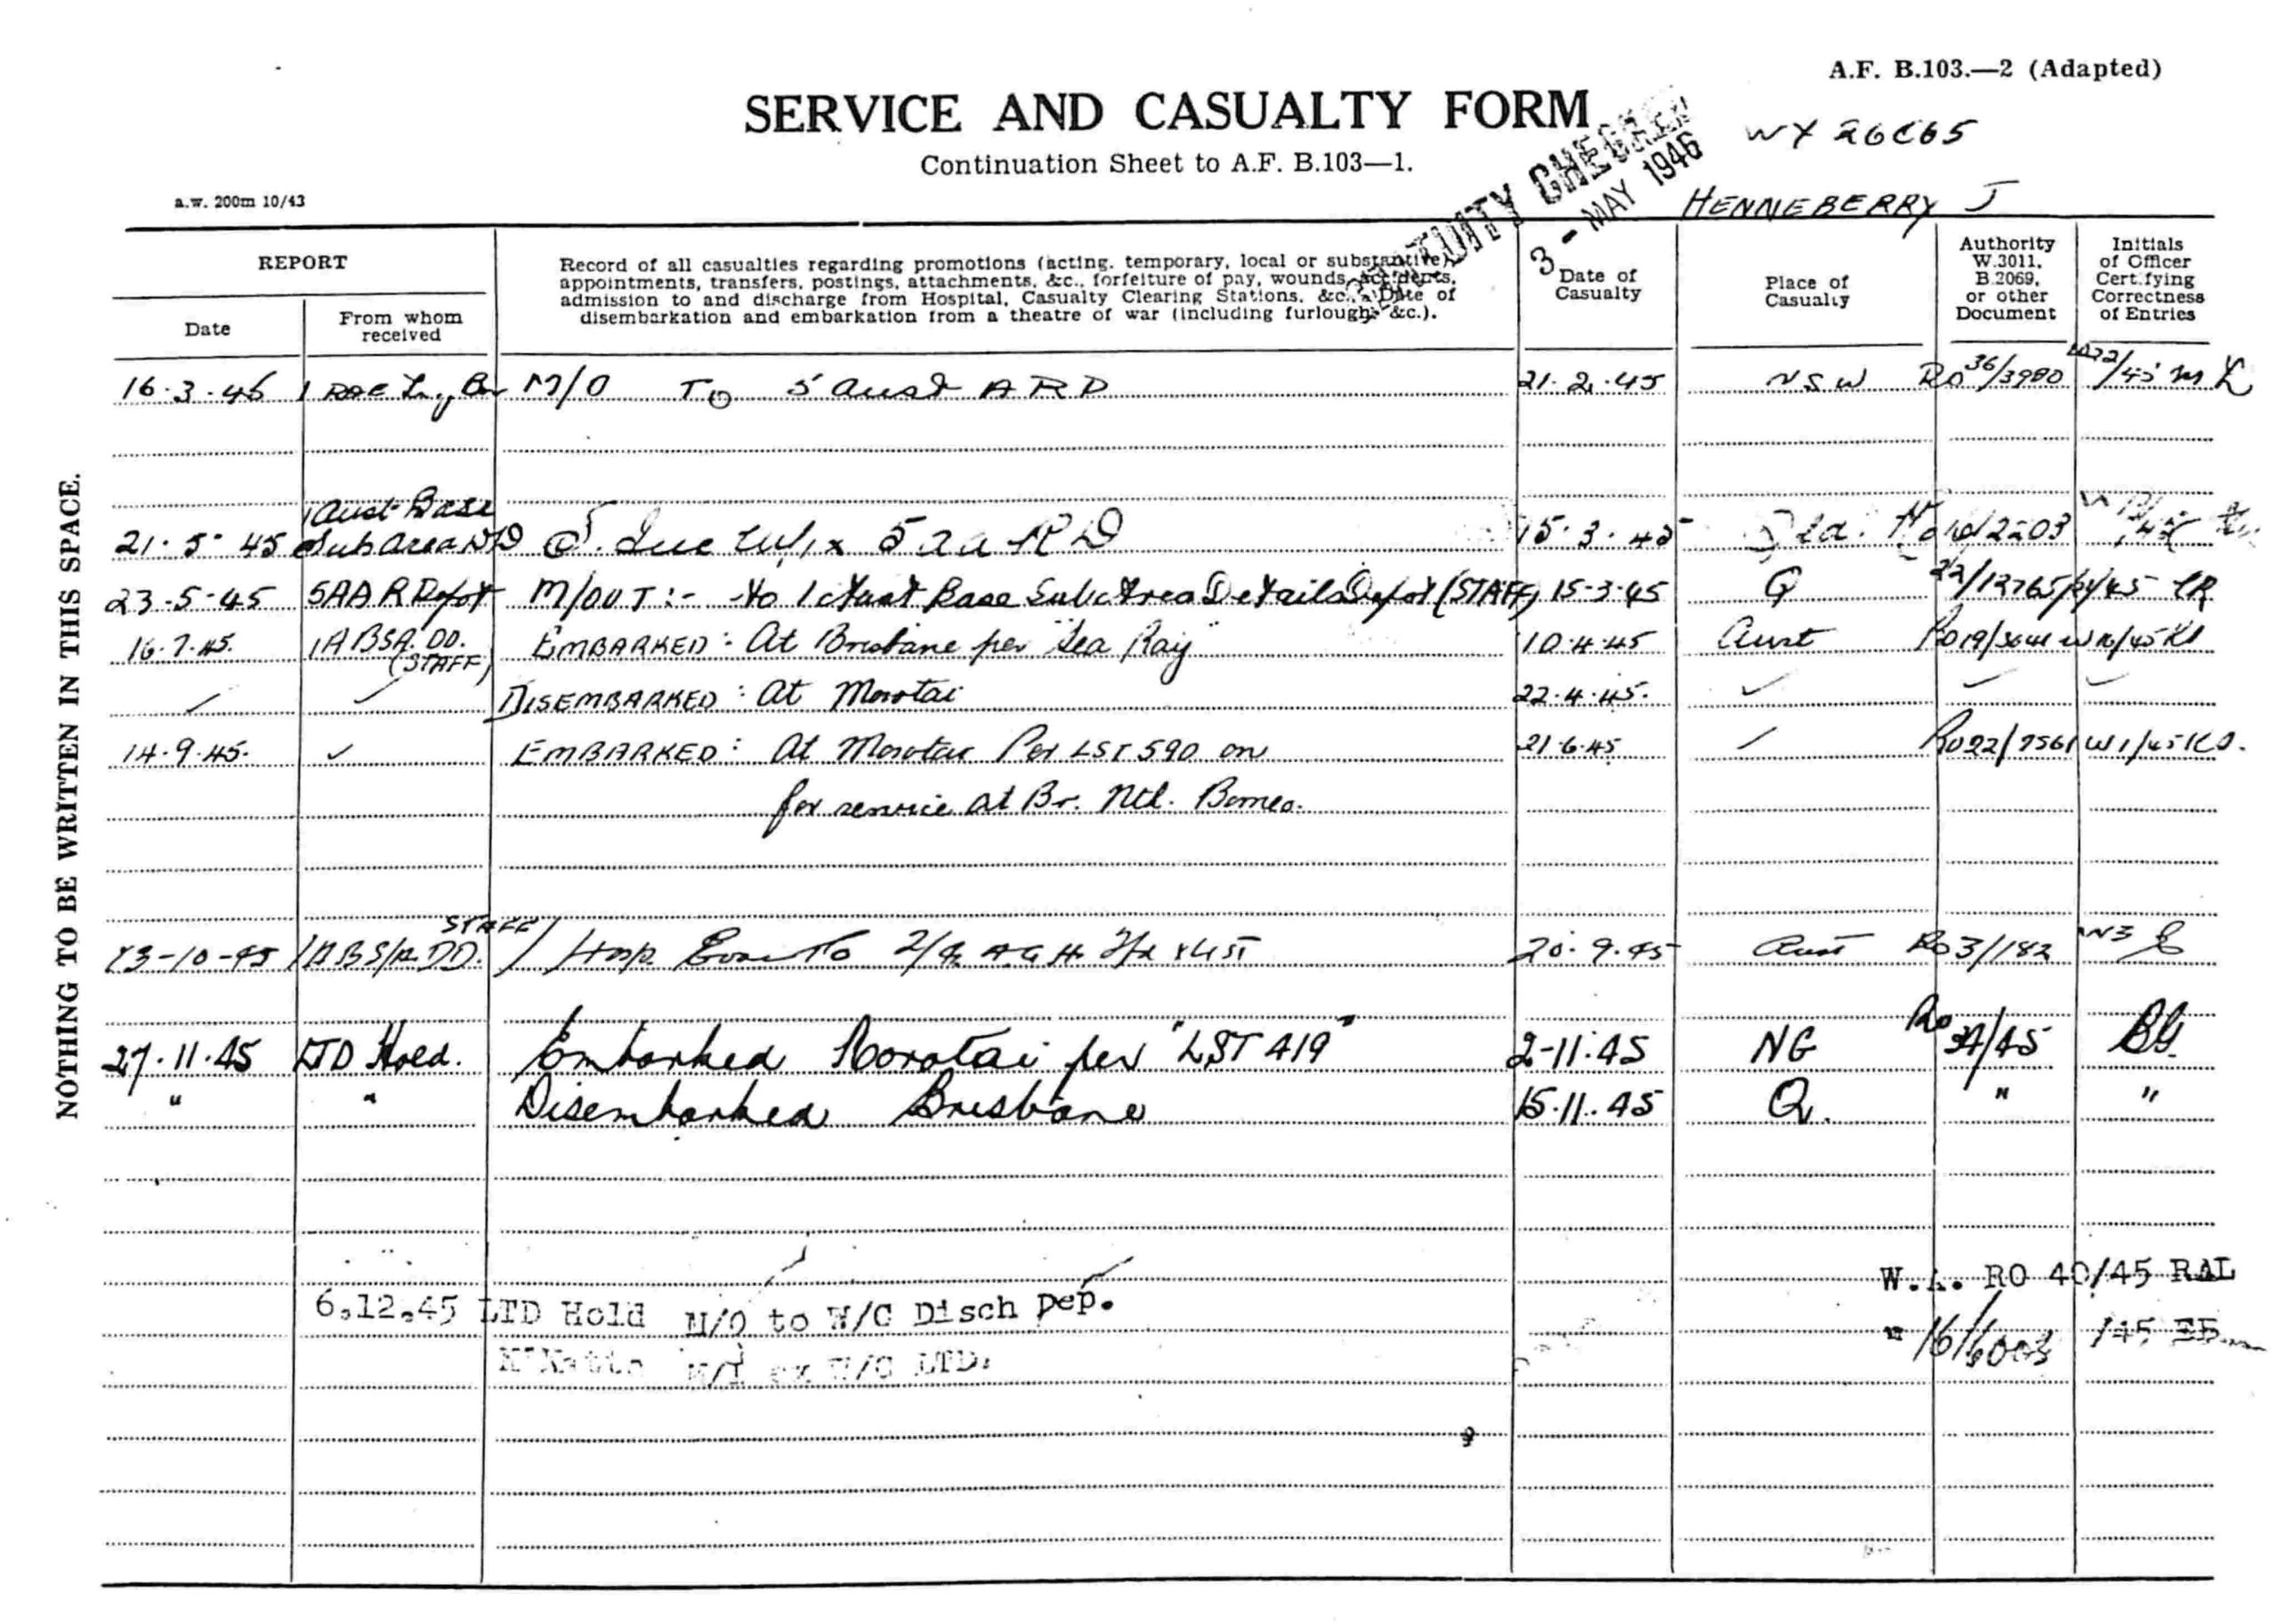 A.F. B.103.—2 (Adapted)
SERVICE AND CASUALTY FORM
Continuation Sheet to A.F. B.103—1.
WX 26665
CHECKED
3 - MAY 1946
a.w. 200m 10/43
HENNEBERRY J
REPORT
Date
From whom received
Record of all casualties regarding promotions (acting, temporary, local or substantive),
appointments, transfers, postings, attachments, &c., forfeiture of pay, wounds, accidents,
admission to and discharge from Hospital, Casualty Clearing Stations, &c., Date of
disembarkation and embarkation from a theatre of war (including furlough, &c.).
Date of Casualty
Place of Casualty
Authority W.3011, B.2069, or other Document
Initials of Officer Certifying Correctness of Entries
NOTHING TO BE WRITTEN IN THIS SPACE.
16.3.45 1 RAE M/O TO 5 Aust ARD 21.2.45 NSW RO 36/3980
1 Aust Base
21.5.45 Sub Area DD 5 AARD 15.3.45
23-5-45 5AAR Depot M/OUT:- to 1 Aust Base Sub Area Details Depot (STAFF) 15-3-45 Q 22/12765/21/45 CR
16.7.45. 1ABSA.DD. (STAFF) EMBARKED: At Brisbane per "Sea Ray" 10.4.45 Aust RO19/
✓ ✓ DISEMBARKED: At Morotai 22.4.45. ✓ ✓ ✓
14.9.45. ✓ EMBARKED: At Morotai Per LST 590 on 21.6.45 ✓ RO22/7561 W1/45
for service at Br. Nth. Borneo.
STAFF
13-10-45 1ABS/A.DD. Hosp. Evac To 2/4 AGH 20.9.45 Aust RO3/182 W3
27.11.45 LTD Hold. Embarked Morotai per "LST 419" 2-11-45 NG RO 34/45 BG
" " Disembarked Brisbane 15.11.45 Q. " "
W.A. RO 40/45 RAL
6.12.45 LTD Hold M/O to W/C Disch Dep.
" 16/6003 /45 EB
M/I ex W/C LTD.